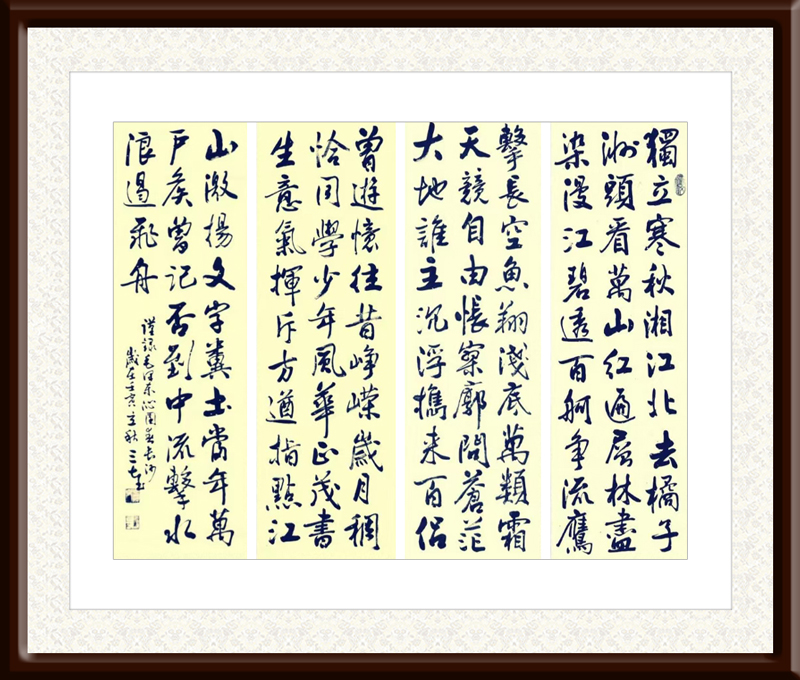 獨立寒秋湘江北去橘子
洲頭看萬山紅遍层林盡
染漫江碧透百舸争流鷹
擊長空魚翔淺底萬類霜
天競自由悵寥廓問蒼茫
大地誰主沉浮携来百侣
曾遊憶往昔崢嶸歲月稠
恰同學少年風華正茂書
生意氣揮斥方遒指點江
山激揚文字糞土當年萬
户矦曾记否到中流擊水
浪遏飛舟
谨录毛泽东沁園春長沙
歲在壬寅立秋